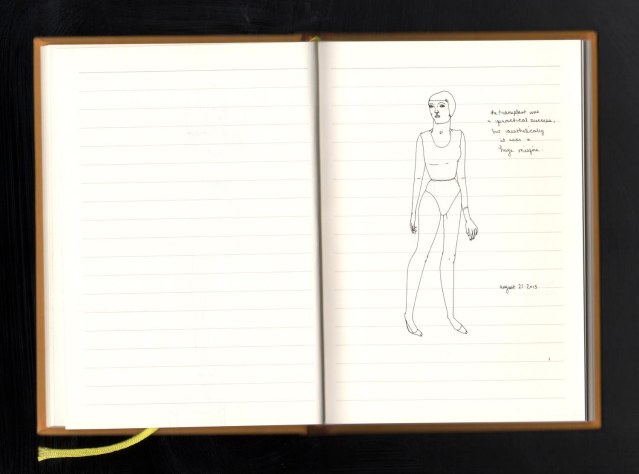 the transplant was
a practical success,
but aesthetically
it was a
huge
august 21 2015